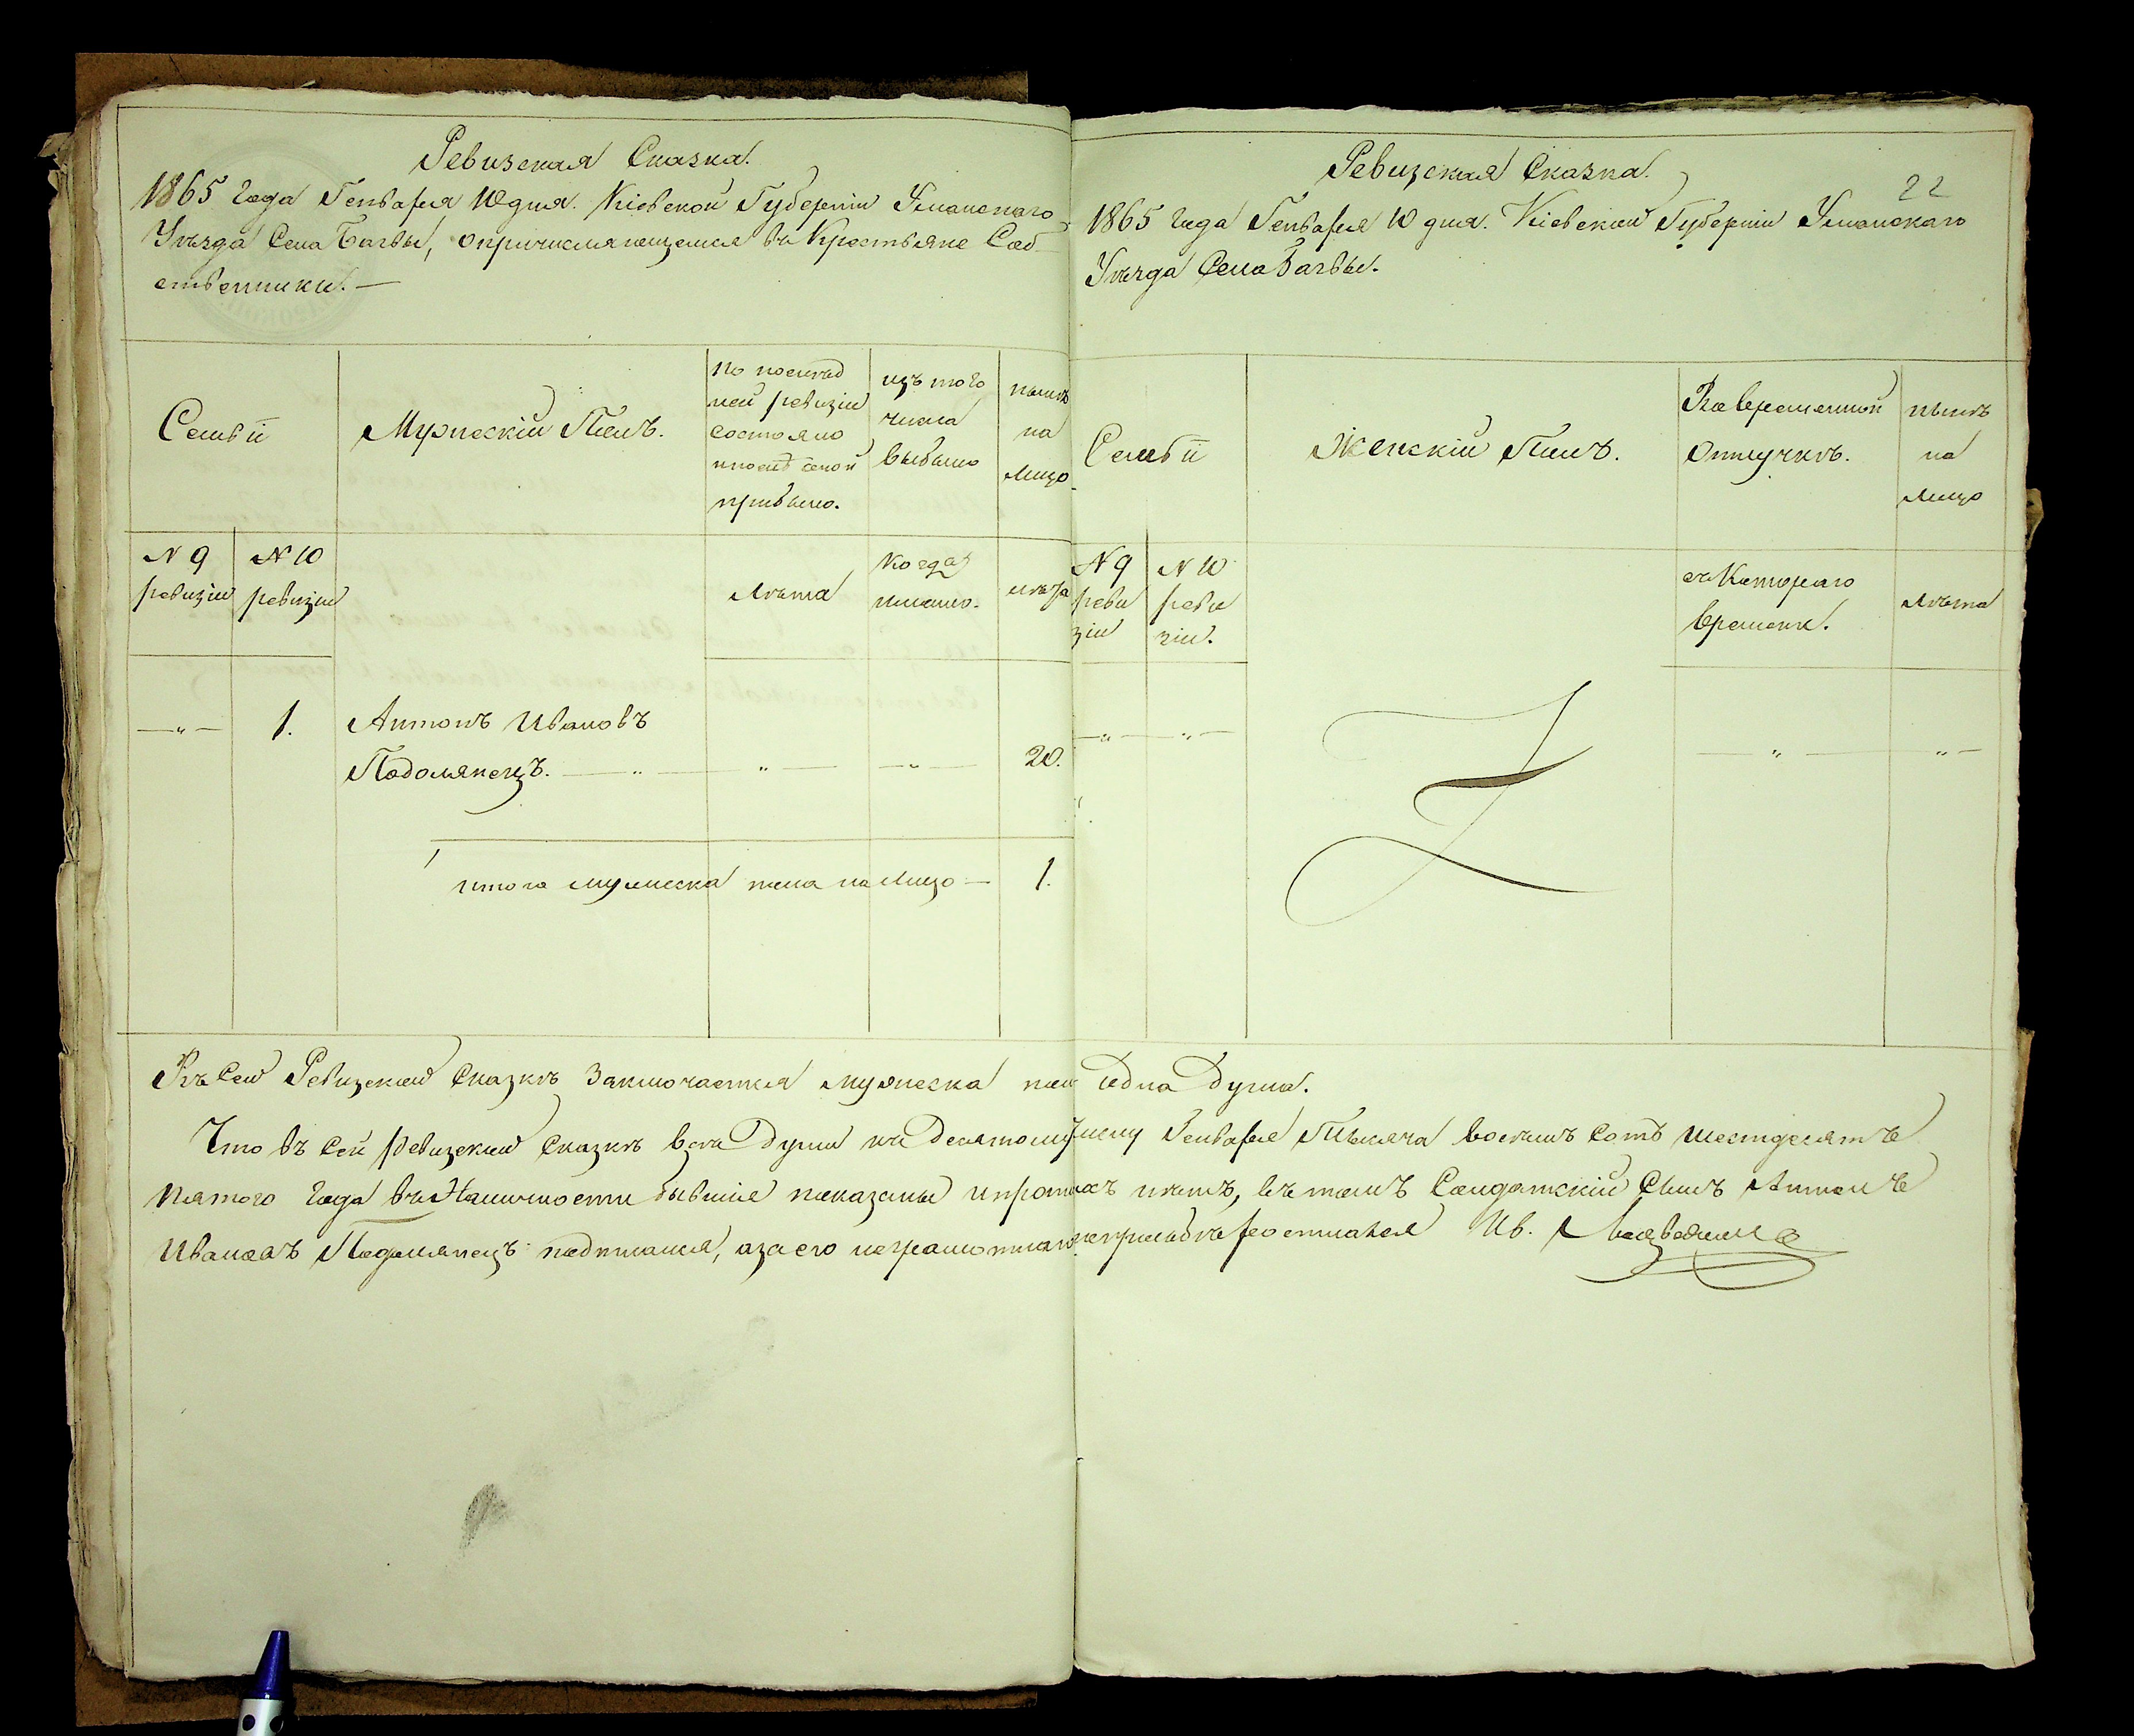 Ревизская Сказка.
1865 года Генваря 10 дня. Кіевской Губерніи Уманскаго
Уѣзда Села Багвы, о причисляющемся въ Крестьяне Соб
ственники.—
Семьи
Мужескій Полъ.
по послѣд
ней ревизіи
состояло
и послѣ оной
прибыло.
изъ того
числа
выбыло
нынѣ
на
лицо
N 9
ревизіи
N 10
ревизіи
Лѣта
Когда
именно.
лѣта
1.
Антонъ Ивановъ
Подолянецъ.
20.
Итого мужеска пола на Лицо — 1.
Ревизская Сказка.
22
1865 года Генваря 10 дня. Кіевской Губерніи Уманскаго
Уѣзда Села Багвы.
Семьи
Женскій Полъ.
Во временной
Отлучкѣ.
нынѣ
на
Лицо
N 9
реви
зіи
N 10
реви
зіи.
съ Котораго
времени.
Лѣта
Въ Сей Ревизской Сказкѣ Заключается мужеска пола одна Душа.
Что въ Сей Ревизской Сказкѣ всѣ Души къ Десятому числу Генваря Тысяча восемь сотъ шестдесятъ
пятого Года въ Наличности бывшіе показаны и прописныхъ нѣтъ, въ томъ Солдатскій Сынъ Антонъ
Ивановъ Подолянецъ подписался, а за его неграмотнаго по прозьбѣ росписался Ив.